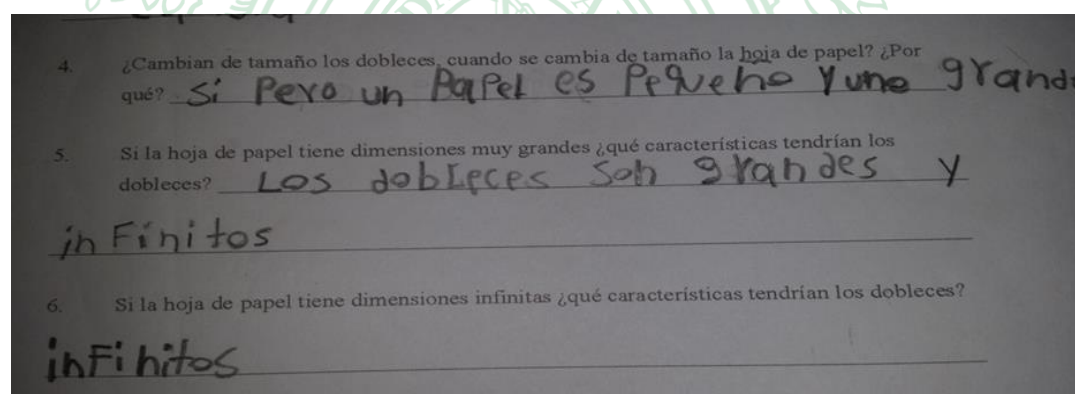 4. ¿Cambian de tamaño los dobleces, cuando se cambia de tamaño la hoja de papel? ¿Por
qué? Si Pero un Papel es Pequeño y uno grand
5. Si la hoja de papel tiene dimensiones muy grandes ¿qué características tendrían los
dobleces? Los dobleces son grandes y
infinitos
6. Si la hoja de papel tiene dimensiones infinitas ¿qué características tendrían los dobleces?
infinitos